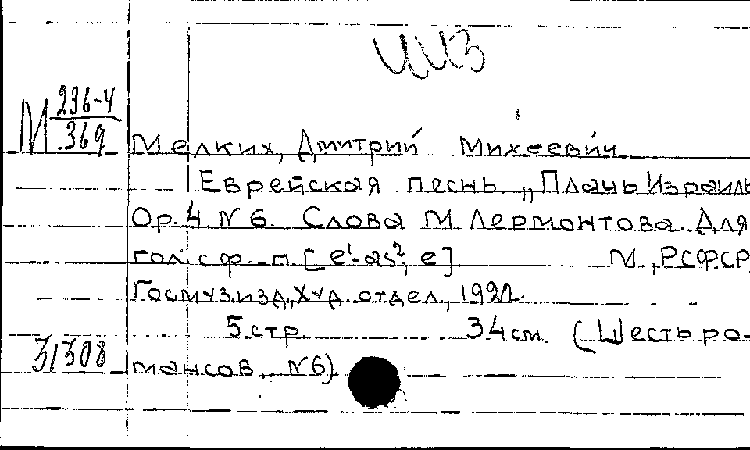 ЦИЗ
М 236-4
369
Мелких, Дмитрий Михеевич
Еврейская песнь „Плачь Израиль
Op. 4 № 6. Слова М. Лермонтова. Для
гол. с ф.-п. [e¹-as², e] М., РСФСР,
Госмуз.изд., Худ. отдел, 1922.
5 стр. 34 см. (Шесть ро-
31308
мансов, №6)